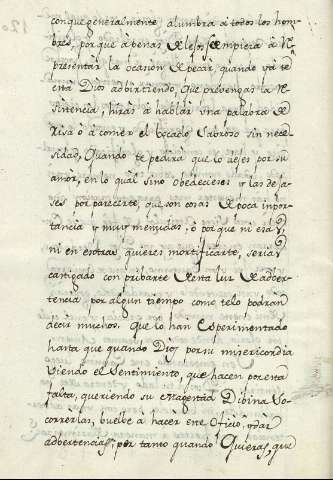 con que generalmente alumbra a todos los hom-
bres, por que apenas de lejos se empieza a Re
presentar la ocasion de pecar, quando ya te
esta Dios adbirtiendo, que prevengas la Re
sistencia, hiras à hablar una palabra de
Risa ò a comer el bocado sabroso sin nece-
sidad, Quando te pedira que lo dejes por su
amor, en lo qual sino obedecieres y las deja-
ses por parecerte, que son cosas de poca inpor-
tancia y muy menudas, o por que ni en
ni en esotras quieres mortificarte, serias
castigado con pribarte de esta luz de adber-
tencia por algun tiempo como telo podran
decir muchos. Que lo han Esperimentado
hasta que quando Dios por su misericordia
viendo el Sentimiento, que hacen por esta
falta, queriendo su Magestad Dibina so-
correrlas, buelbe à hacer este oficio, dar
adbertencias, por tanto quando Quieras, que